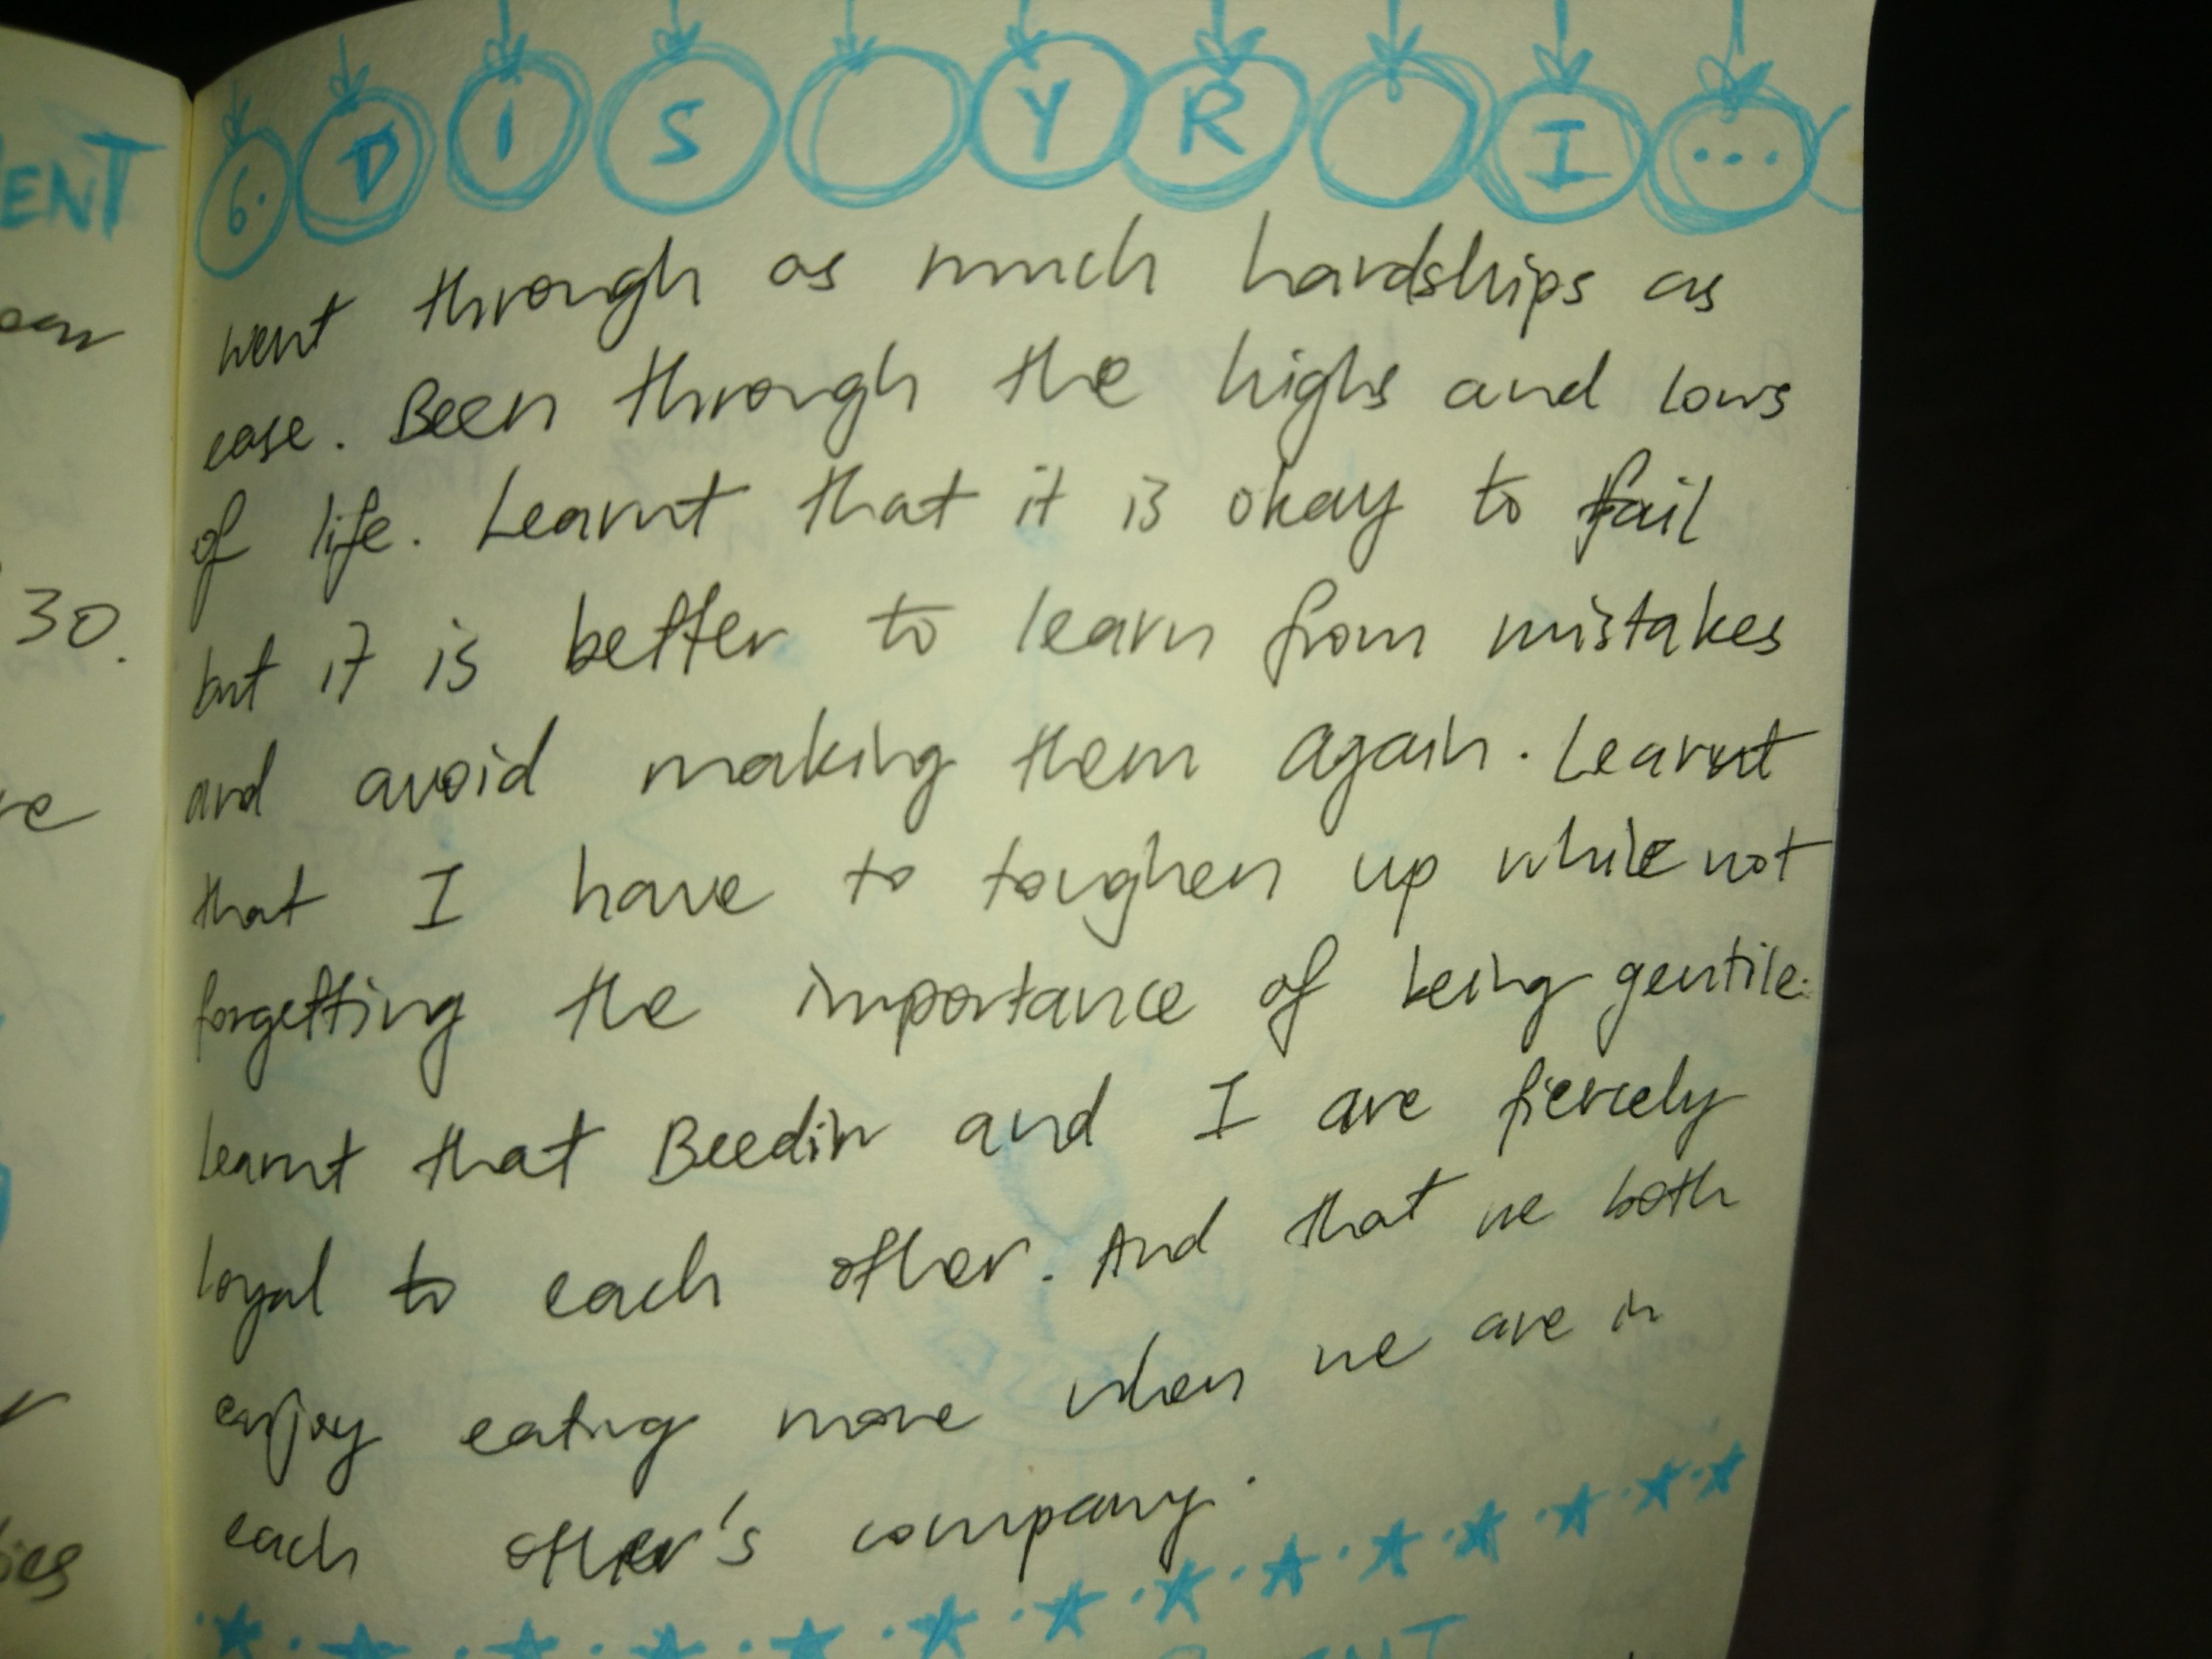 6. DIS YR I...
went through as much hardships as
ease. Been through the highs and lows
of life. Learnt that it is okay to fail
but it is better to learn from mistakes
and avoid making them again. Learnt
that I have to toughen up while not
forgetting the importance of being gentile.
Learnt that Beedin and I are fiercely
loyal to each other. And that we both
enjoy eating more when we are in
each other's company.
ENT
30.